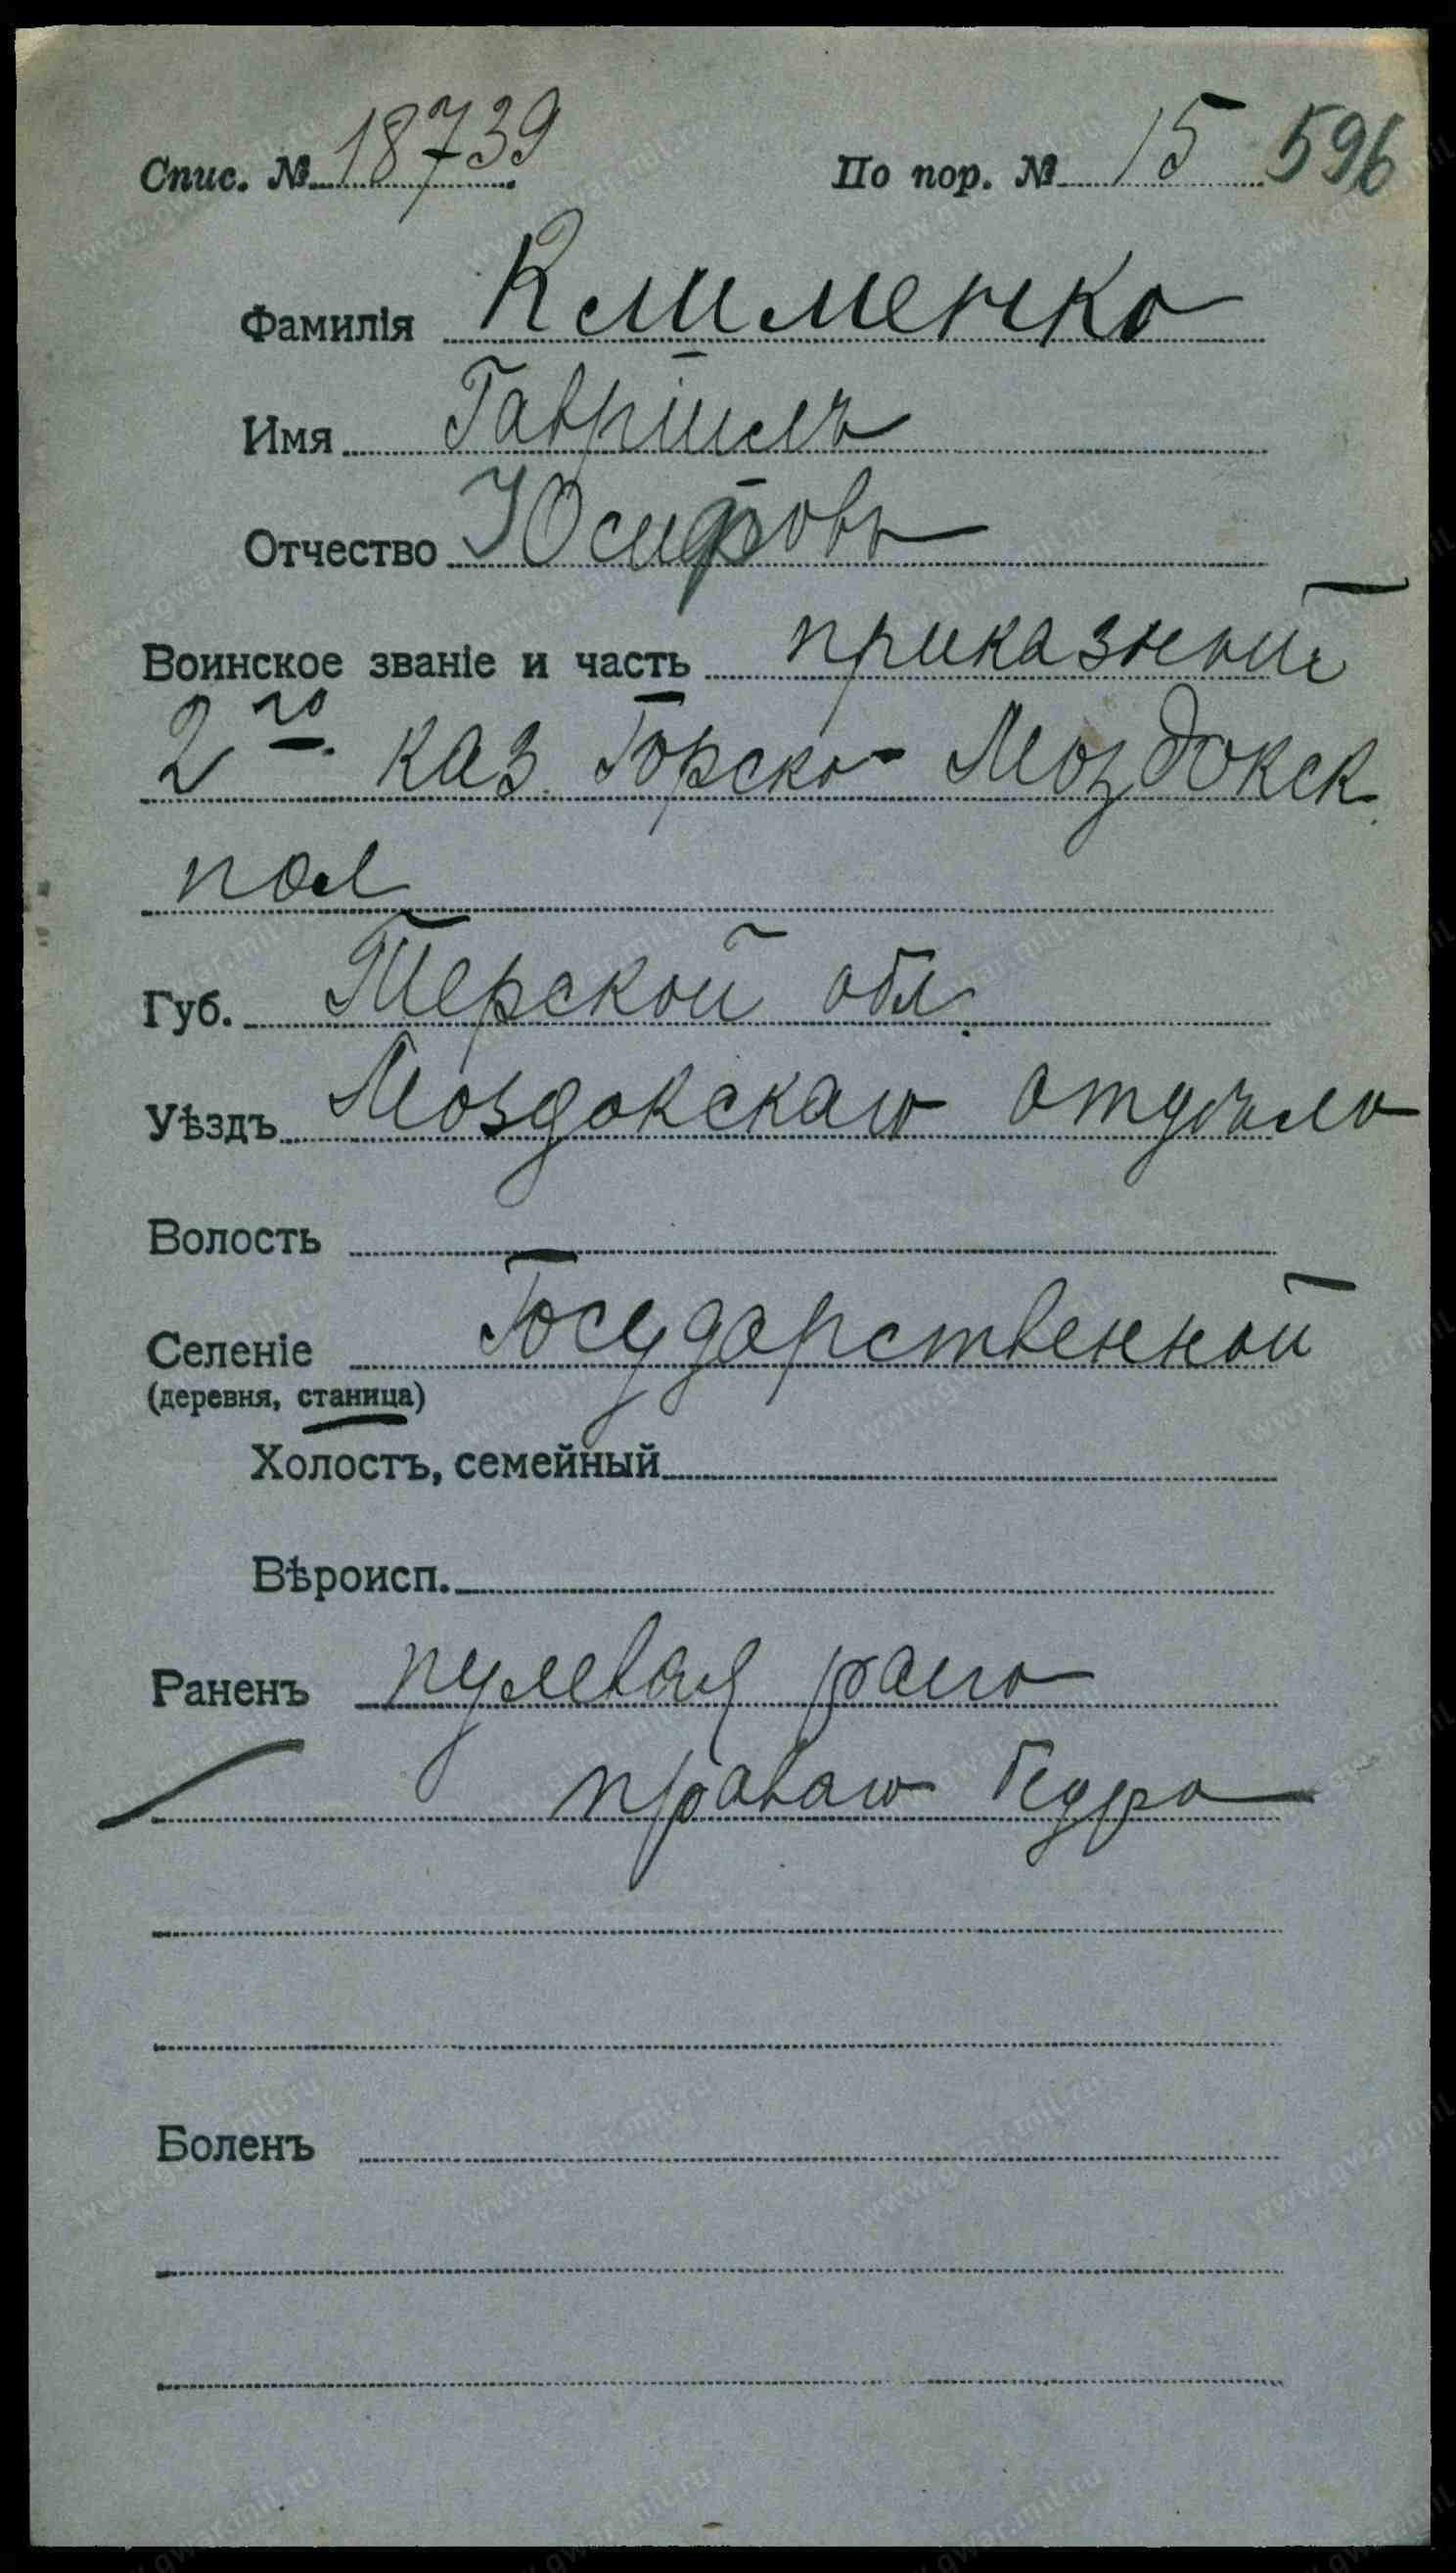 Спис. № 18739 По пор. № 15 596
Фамилія Клименко
Имя Гавріилъ
Отчество Юсифовъ
Воинское званіе и часть приказный
2го. каз. Горско-Моздокск.
пол
Губ. Терской обл.
Уѣздъ Моздокскаго отдѣла
Волость
Селеніе Государственной
(деревня, станица)
Холостъ, семейный
Вѣроисп.
Раненъ пулевая рана
праваго бедра
Боленъ